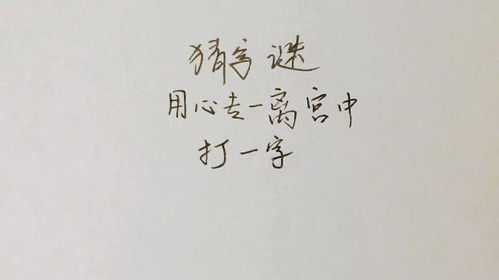 猜字谜
用心去一离宫中
打一字